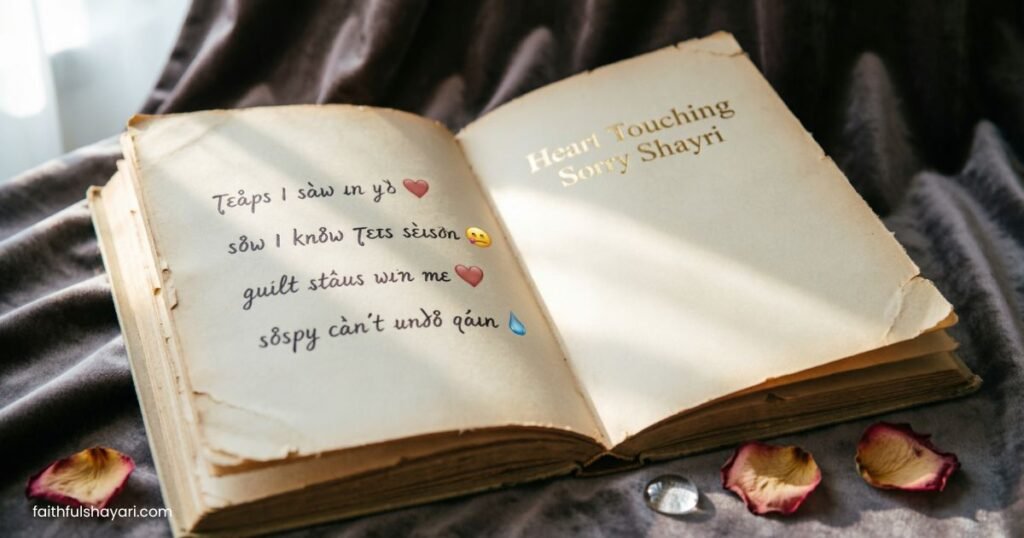 Tɛåps I sàw ın yծ ❤️
sծw I knծw Tɛıs sèısծn 🤕
guilt stâus wın me ❤️
sծspy càn't unծծ qáın 💧
Heart Touching
Sorry Shayri
faithfulshayari.com